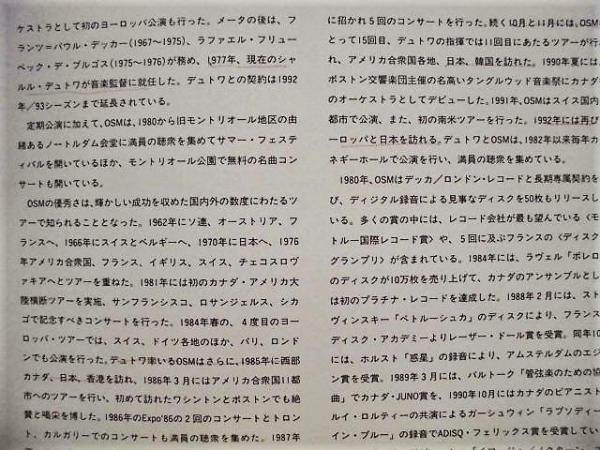 ケストラとして初のヨーロッパ公演も行った。メータの後は、フ
ランツ=パウル・デッカー(1967〜1975)、ラファエル・フリュー
ベック・デ・ブルゴス(1975〜1976)が務め、1977年、現在のシャ
ルル・デュトワが音楽監督に就任した。デュトワとの契約は1992
年/93シーズンまで延長されている。
定期公演に加えて、OSMは、1980から旧モントリオール地区の由
緒あるノートルダム会堂に満員の聴衆を集めてサマー・フェステ
ィバルを開いているほか、モントリオール公園で無料の名曲コン
サートも開いている。
OSMの優秀さは、輝かしい成功を収めた国内外の数度にわたるツ
アーで知られることとなった。1962年にソ連、オーストリア、フ
ランスへ、1966年にスイスとベルギーへ、1970年に日本へ、1976
年アメリカ合衆国、フランス、イギリス、スイス、チェコスロヴ
ァキアへとツアーを重ねた。1981年には初のカナダ・アメリカ大
陸横断ツアーを実施、サンフランシスコ、ロサンジェルス、シカ
ゴで記念すべきコンサートを行った。1984年春の、4度目のヨー
ロッパ・ツアーでは、スイス、ドイツ各地のほか、パリ、ロンド
ンでも公演を行った。デュトワ率いるOSMはさらに、1985年に西部
カナダ、日本、香港を訪れ、1986年3月にはアメリカ合衆国11都
市へのツアーを行い、初めて訪れたワシントンとボストンでも絶
賛と喝采を博した。1986年のExpo'86の2回のコンサートとトロン
ト、カルガリーでのコンサートも満員の聴衆を集めた。1987年
に招かれ5回のコンサートを行った。続く10月と11月には、OSM
とって15回目、デュトワの指揮では11回目にあたるツアーが行
れ、アメリカ合衆国各地、日本、韓国を訪れた。1990年夏には
ボストン交響楽団主催の名高いタングルウッド音楽祭にカナダ
のオーケストラとしてデビューした。1991年、OSMはスイス国内
都市で公演、また、初の南米ツアーを行った。1992年には再び
ーロッパと日本を訪れる。デュトワとOSMは、1982年以来毎年カ
ネギーホールで公演を行い、満員の聴衆を集めている。
1980年、OSMはデッカ/ロンドン・レコードと長期専属契約を
び、ディジタル録音による見事なディスクを50枚もリリースし
いる。多くの賞の中には、レコード会社が最も望んでいる〈モ
トルー国際レコード賞〉や、5回に及ぶフランスの〈ディスク
グランプリ〉が含まれている。1984年には、ラヴェル「ボレロ
のディスクが10万枚を売り上げて、カナダのアンサンブルとし
は初のプラチナ・レコードを達成した。1988年2月には、スト
ヴィンスキー「ペトルーシュカ」のディスクにより、フランス
ディスク・アカデミーよりレーザー・ドール賞を受賞。同年10
には、ホルスト「惑星」の録音により、アムステルダムのエジ
ン賞を受賞。1989年3月には、バルトーク「管弦楽のための協
曲」でカナダ・JUNO賞を、1990年10月にはカナダのピアニスト
ルイ・ロルティーの共演によるガーシュウィン「ラプソディー
イン・ブルー」の録音でADISQ・フェリックス賞を受賞してい